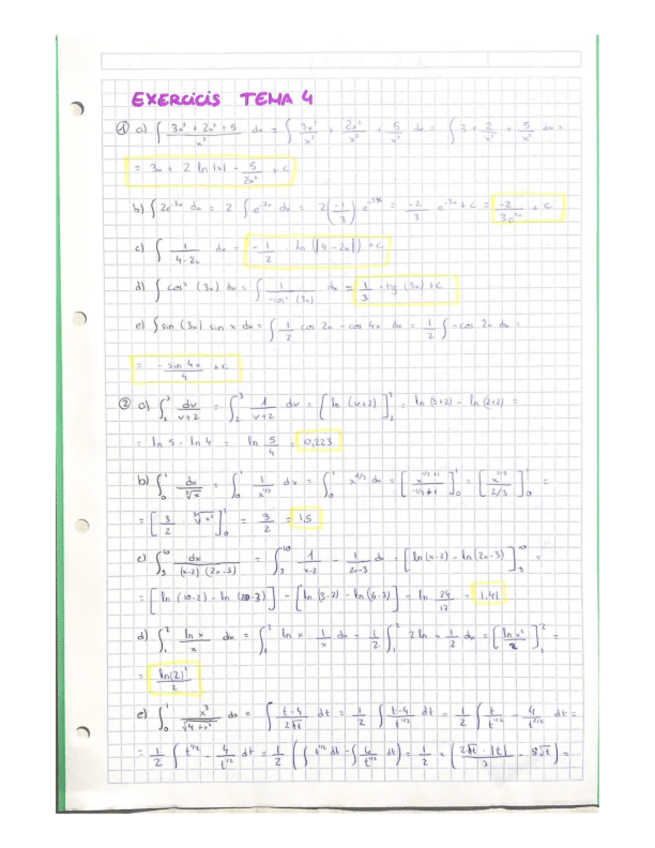 EXERCICIS TEMA 4
① a) ∫ (3x³ + 2x² + 5)/x³ dx = ∫ 3x³/x³ + 2x²/x³ + 5/x³ dx = ∫ 3 + 2/x + 5/x³ dx =
= 3x + 2 ln|x| - 5/(2x²) + C
b) ∫ 2e^(-3x) dx = 2 ∫ e^(-3x) dx = 2(-1/3) e^(-3x) = -2/3 e^(-3x) + C = -2/(3e^(3x)) + C
c) ∫ 1/(4-2x) dx = -1/2 · ln(|4-2x|) + C
d) ∫ cos² (3x) dx = ∫ 1/(-cos² (3x)) dx = 1/3 · tg (3x) + C
e) ∫ sin (3x) sin x dx = ∫ 1/2 cos 2x - cos 4x dx = 1/2 ∫ -cos 2x dx =
= - sin 4x/4 + C
② a) ∫₂³ dv/(v+2) = ∫₂³ 1/(v+2) dv = [ln (v+2)]₂³ = ln (3+2) - ln (2+2) =
= ln 5 - ln 4 = ln 5/4 = 0,223
b) ∫₀¹ dx/∛x = ∫₀¹ 1/x^(1/3) dx = ∫₀¹ x^(-1/3) dx = [x^(-1/3+1)/(-1/3+1)]₀¹ = [x^(2/3)/(2/3)]₀¹ =
= [3/2 · ∛x²]₀¹ = 3/2 = 1,5
c) ∫₃¹⁰ dx/((x-2)(2x-3)) = ∫₃¹⁰ 1/(x-2) - 1/(2x-3) dx = [ln(x-2) - ln(2x-3)]₃¹⁰ =
= [ln (10-2) - ln (20-3)] - [ln (3-2) - ln (6-3)] - ln 24/17 = 1,41
d) ∫₁² ln x/x dx = ∫₁² ln x · 1/x dx = 1/2 ∫₁² 2 ln x · 1/2 dx = [ln x²/2]₁² =
= ln(2)²/2
e) ∫₀¹ x³/√(4+x²) dx = ∫ (t-4)/(2√t) dt = 1/2 ∫ (t-4)/t^(1/2) dt = 1/2 ∫ t/t^(1/2) - 4/t^(1/2) dt =
= 1/2 ∫ t^(1/2) - 4/t^(1/2) dt = 1/2 (∫ t^(1/2) dt - ∫ 4/t^(1/2) dt) = 1/2 · (2√t · |t|/3 - 8√t) =